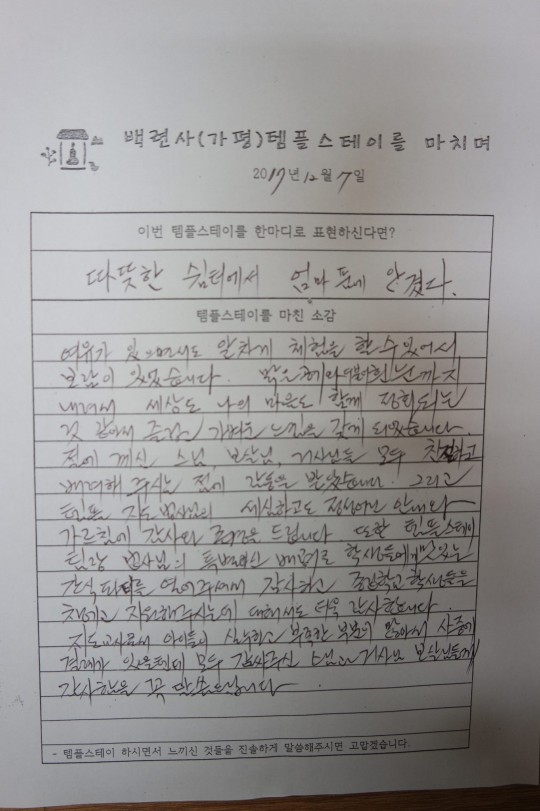 백련사(가평)템플스테이를 마치며
2017년 12월 7일
이번 템플스테이를 한마디로 표현하신다면?
따뜻한 쉼터에서 엄마 품에 안겼다.
템플스테이를 마친 소감
여유가 있으면서도 알차게 체험을 할 수 있어서
보람이 있었습니다. 맑은 공기와 더불어 흰눈까지
내려서 세상도 나의 마음도 함께 정화되는
것 같아서 즐겁고 가벼운 느낌을 갖게 되었습니다.
절에 계신 스님, 보살님, 거사님들 모두 친절하고
배려해 주시는 점에 감동을 받았습니다. 그리고
템플 지도법사님의 세심하고도 정성어린 안내와
가르침에 감사와 존경을 드립니다 또한 템플스테이
팀장 법사님의 특별하신 배려로 학생들에게 맛있는
간식파티를 열어주셔서 감사하고 중간중간 학생들을
챙기고 지원해주시는데 대해서도 더욱 감사합니다.
지도교사로서 아이들이 실수하고 부족한 부분이 많아서 사중에
결례가 있었을텐데 모두 감싸주신 스님과 거사님 보살님들께
감사함을 꼭 말씀드립니다.
- 템플스테이 하시면서 느끼신 것들을 진솔하게 말씀해주시면 고맙겠습니다.